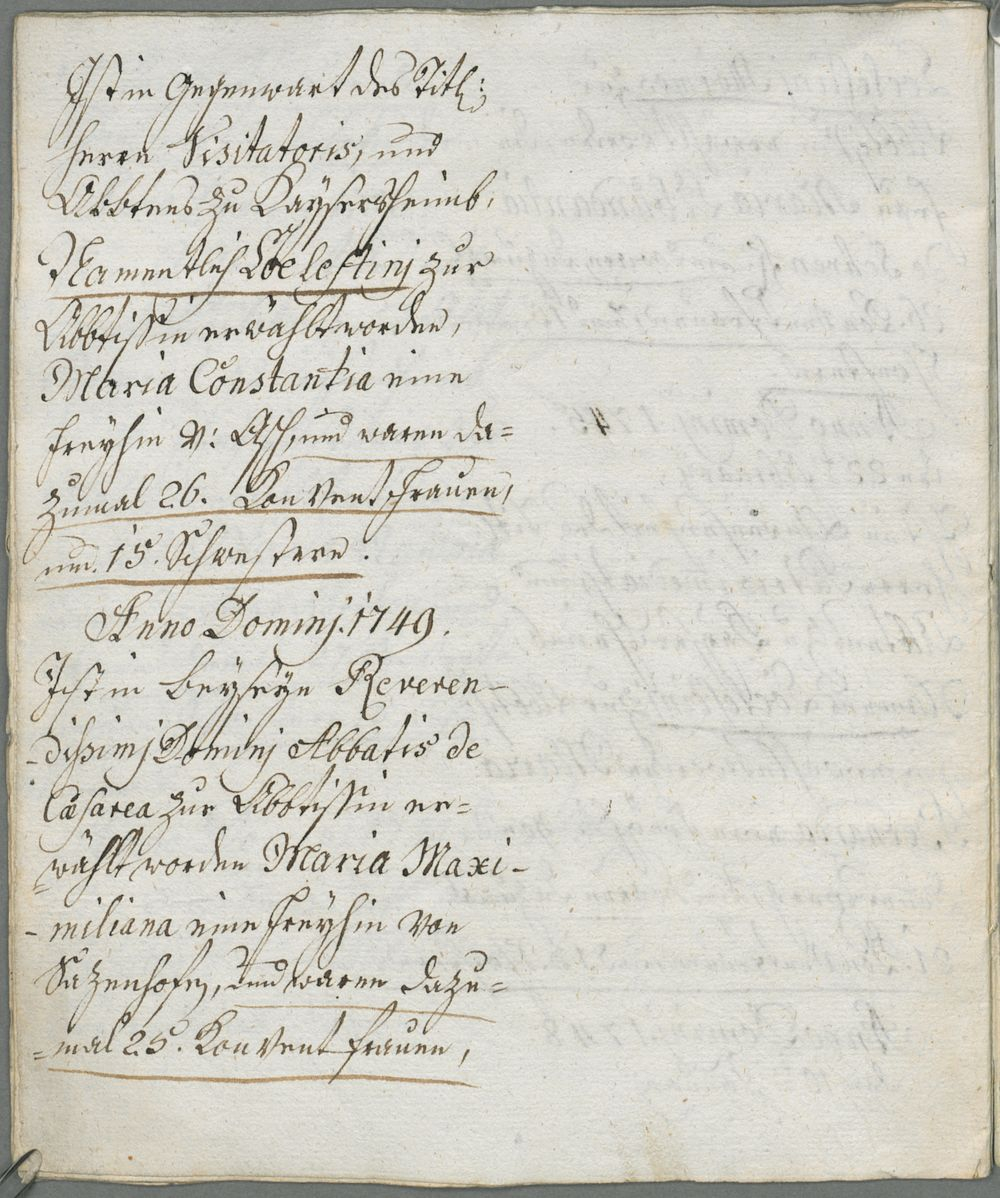 Ist in Gegenwart des Titl:
Herrn Visitatoris, und
Abbtens zu Kaysersheimb,
Namentlich Coelestinj zur
Abbtissin erwählt worden,
Maria Constantia eine
Freyhin v: Asch, und waren da=
zumal 26. Konvent Frauen,
und 15. Schwestern.
Anno Dominj. 1749.
Ist in beyseyn Reveren-
-dissimj Dominj Abbatis de
Cæsarea zur Abbtissin er=
=wählt worden Maria Maxi-
-miliana eine Freyhin von
Sazenhofen, und waren dazu=
=mal 25. Konvent Frauen,